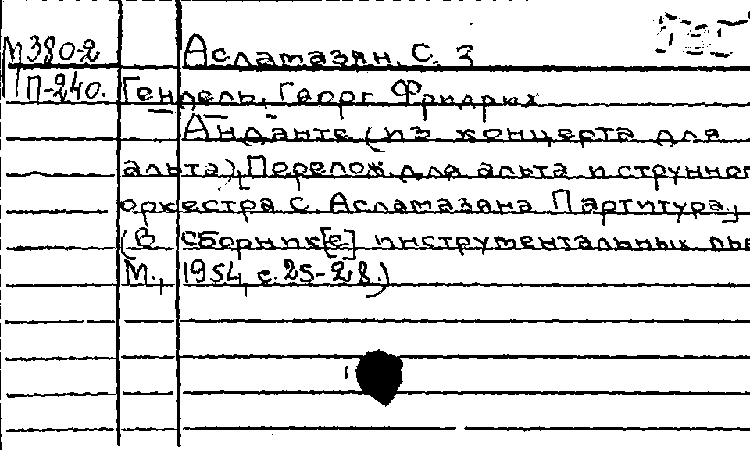 М380-2 Асламазян, С. 3
П-240. Гендель, Георг Фридрих
Анданте (из концерта для
альта), Перелож. для альта и струнного
оркестра С. Асламазяна Партитура,
(В сборник[е] инструментальных пье
М., 1954, с. 25-28.)